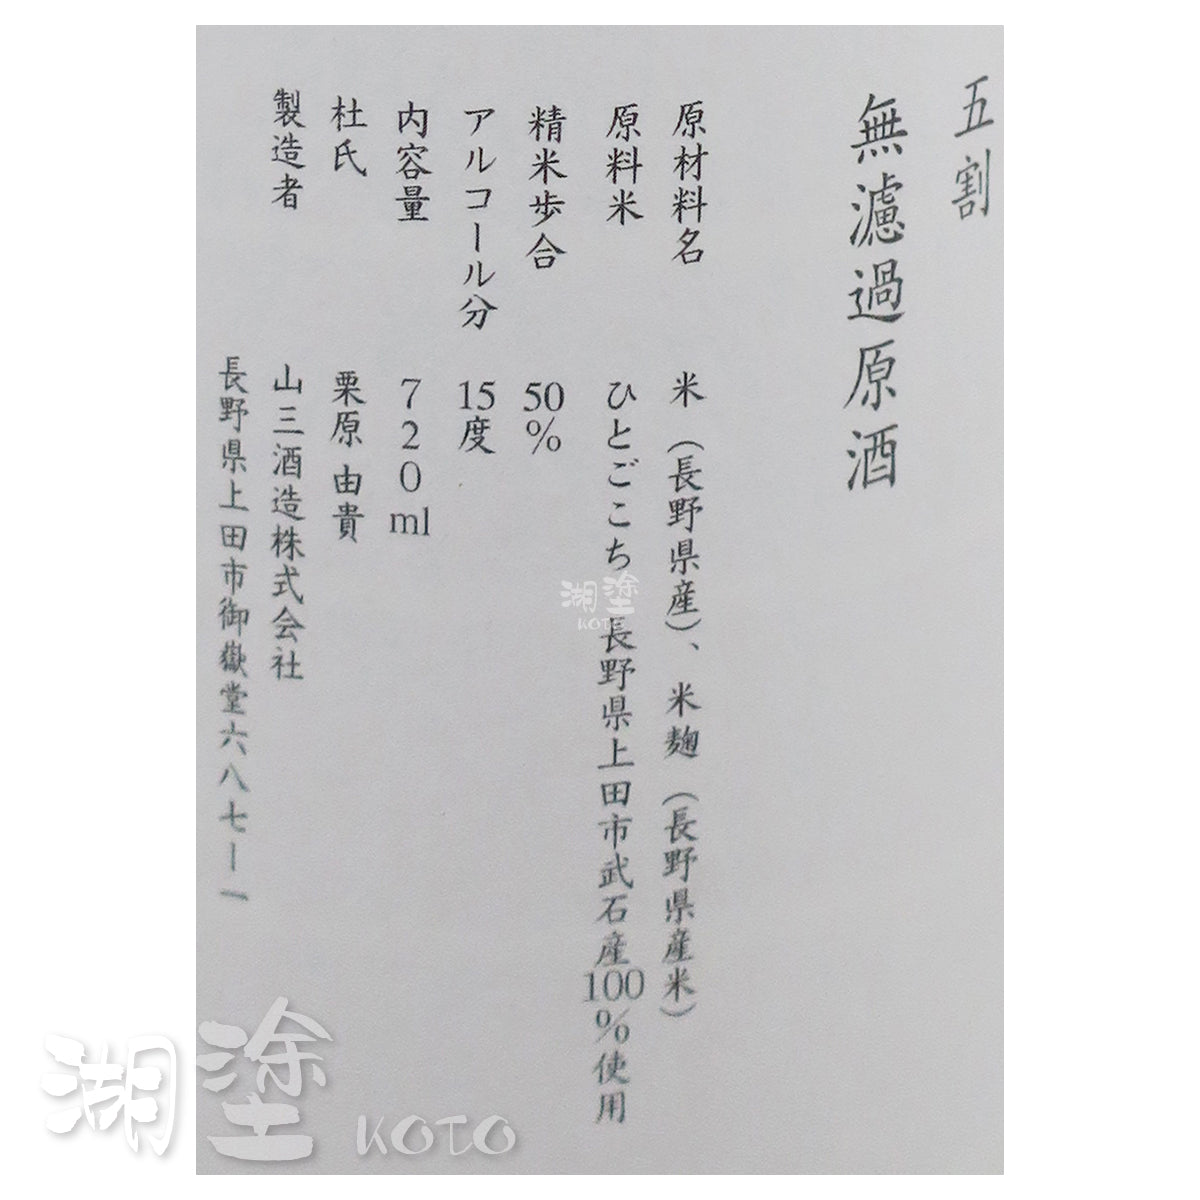 五割
無濾過原酒
原材料名 米（長野県産）、米麹（長野県産米）
原料米 ひとごこち 長野県上田市武石産100%使用
精米歩合 50%
アルコール分 15度
内容量 720ml
杜氏 栗原 由貴
製造者 山三酒造株式会社
長野県上田市御嶽堂六八七ー一
湖塗
KOTO
湖塗 KOTO